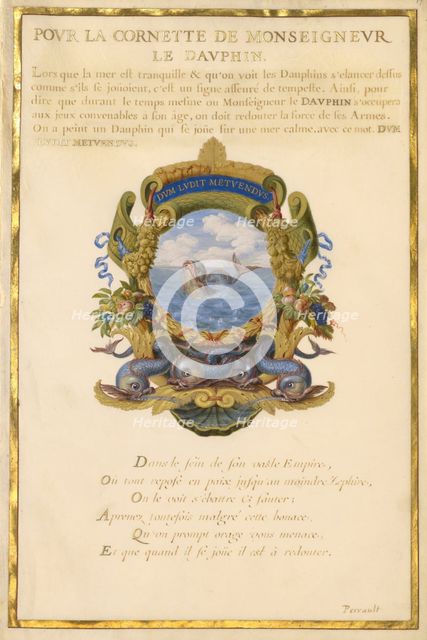 POVR LA CORNETTE DE MONSEIGNEVR
LE DAVPHIN.
Lors que la mer est tranquille & qu'on voit les Dauphins s'elancer dessus
comme s'ils se joüoient, c'est un signe asseuré de tempeste. Ainsi, pour
dire que durant le temps mesme ou Monseigneur le DAVPHIN s'occupera
aux jeux convenables à son âge, on doit redouter la force de ses Armes.
On a peint un Dauphin qui se joüe sur une mer calme, avec ce mot. DVM
LVDIT METVENDVS.
DVM LVDIT METVENDVS
Heritage Images
Heritage Images
Heritage Images
Heritage Images
Heritage Images
Heritage Images
Dans le sein de son vaste Empire,
Où tout repose en paix jusqu'au moindre Zephire,
On le voit s'ebattre & sauter:
Aprenez toutefois malgré cette bonace,
Qu'un prompt orage vous menace,
Et que quand il se joüe il est à redouter.
Perrault